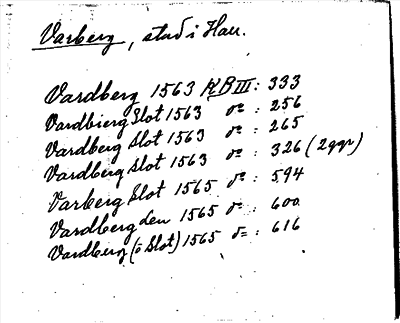 Varberg, stad i Hall.
Vardberg 1563 KB III: 333
Vardbierg Slot 1563 do: 256
Vardberg Slot 1563 do: 265
Vardberg Slot 1563 do: 326 (2 ggr)
Varberg Slot 1565 do: 594
Vardberg den 1565 do: 600
Vardberg (ö Slot) 1565 do: 616